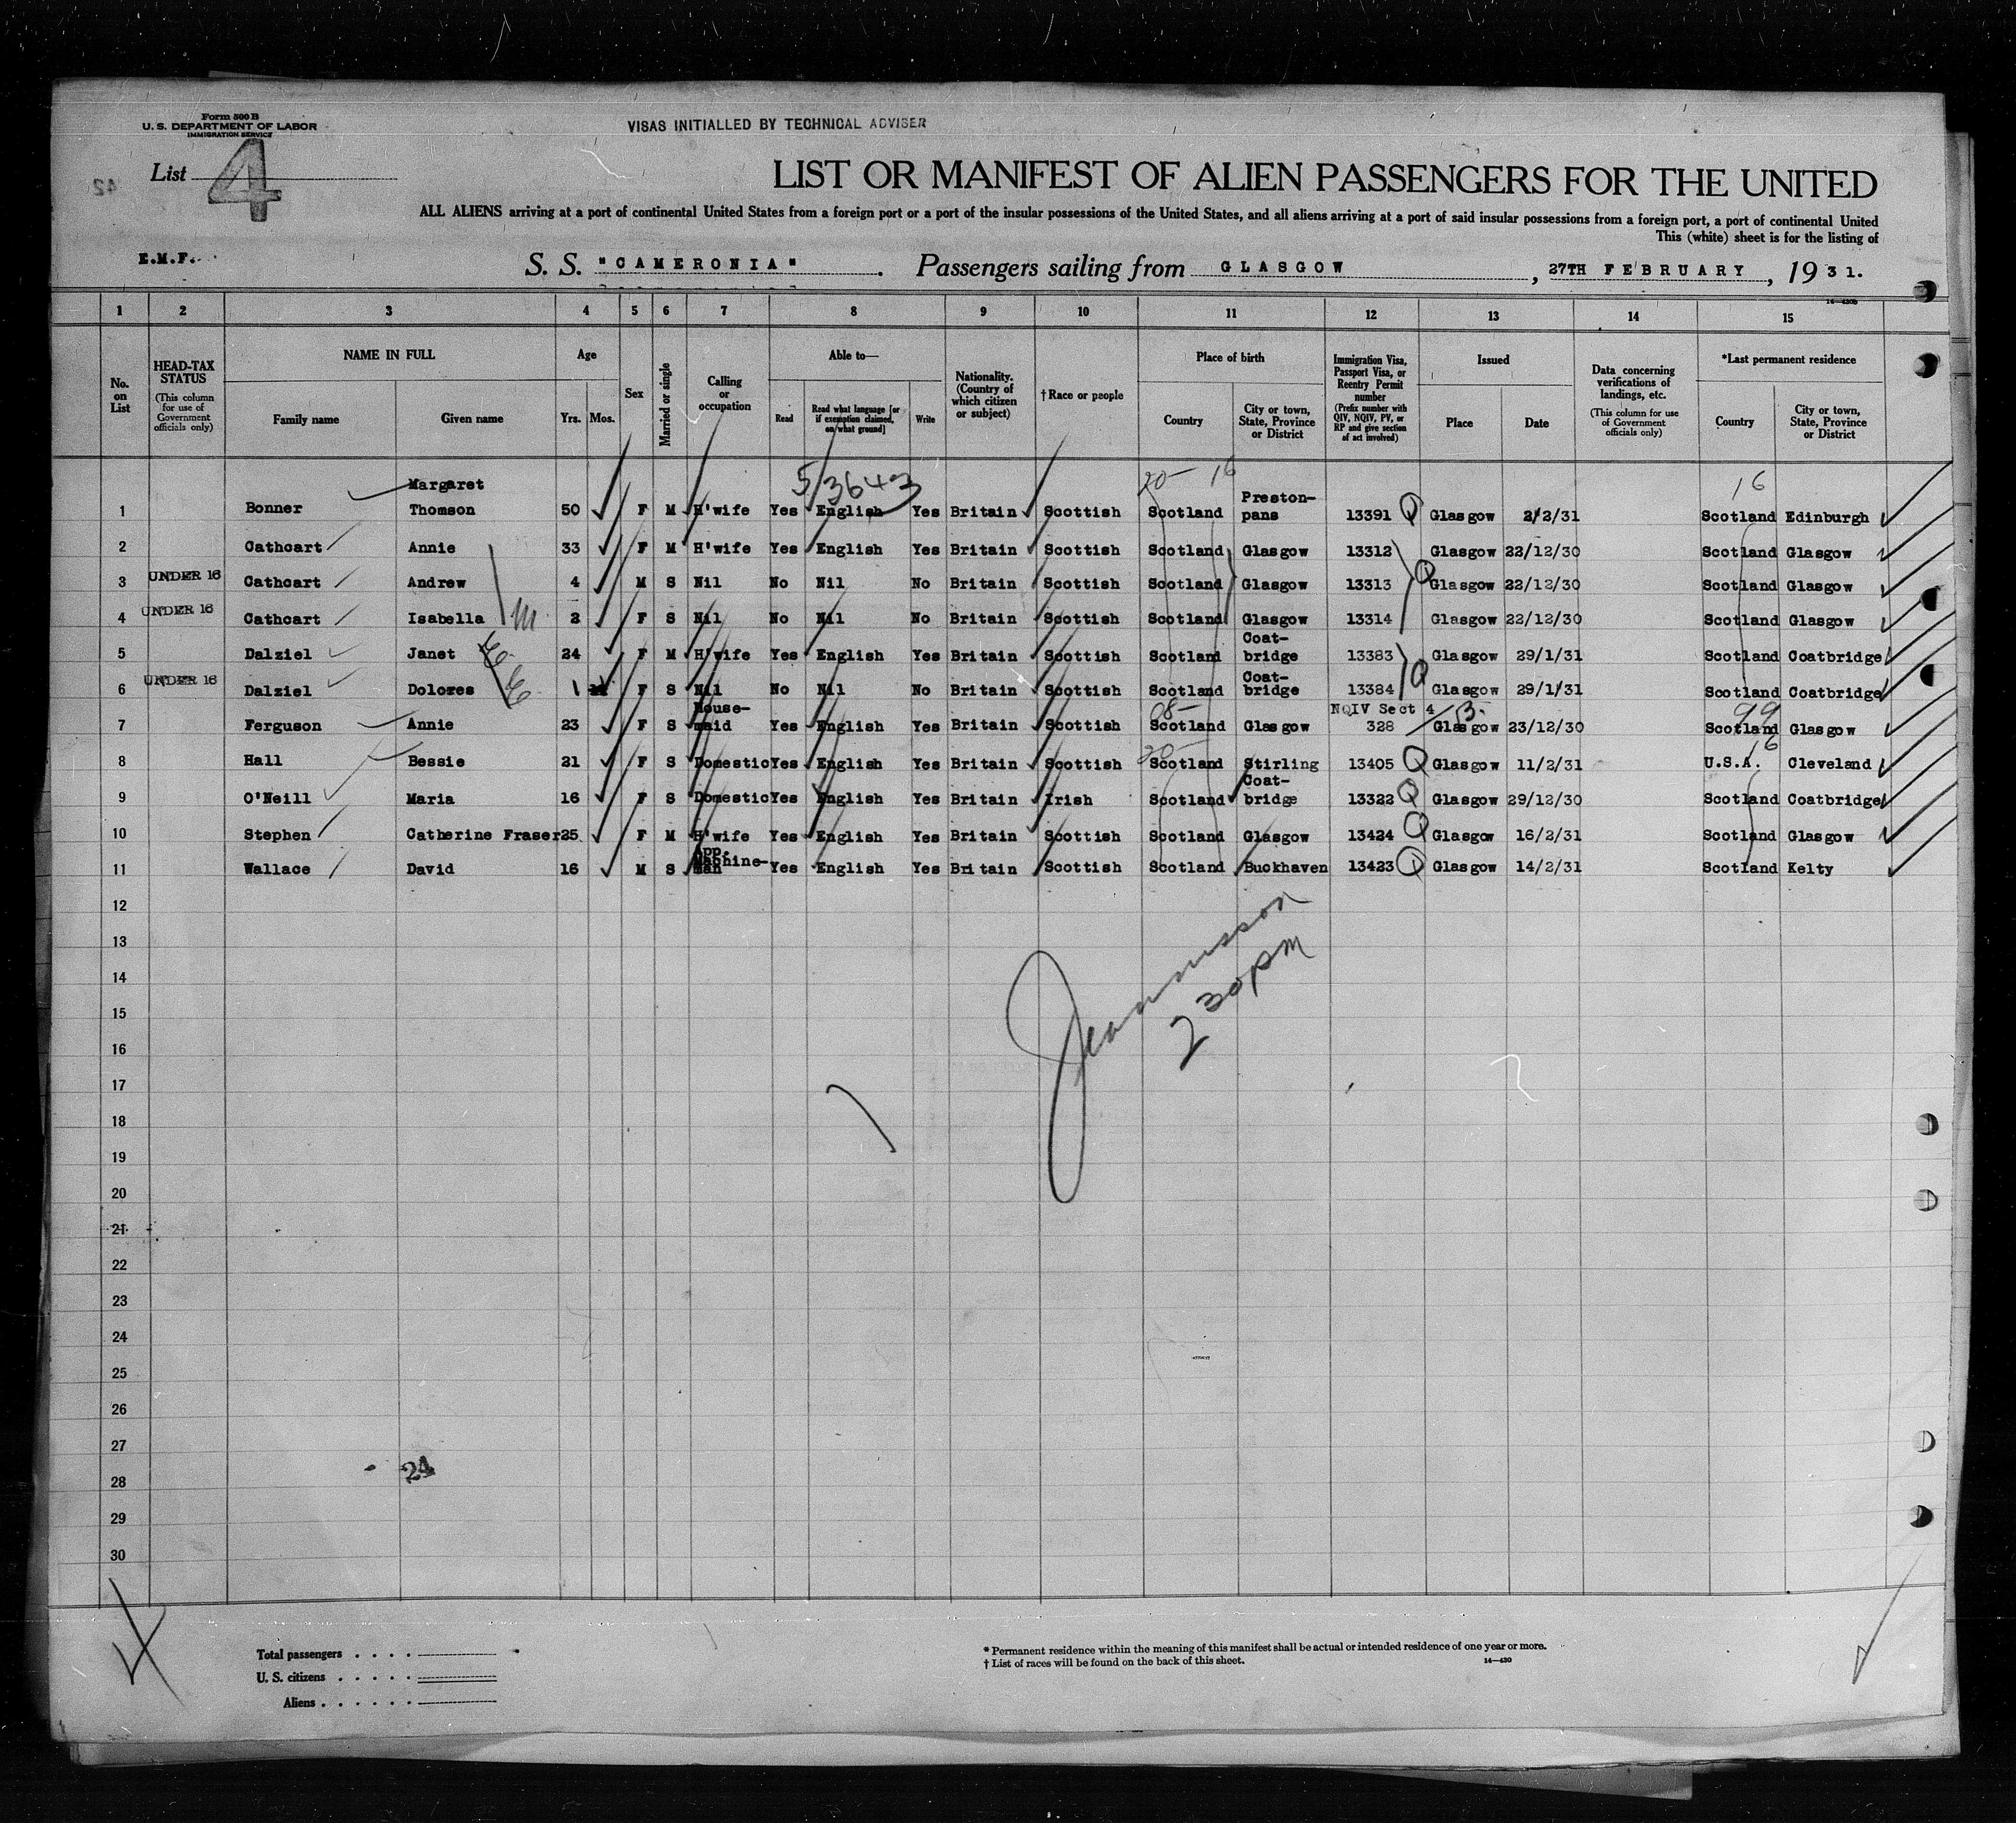 Form 500 B
U. S. DEPARTMENT OF LABOR
IMMIGRATION SERVICE
VISAS INITIALLED BY TECHNICAL ADVISER
List 4
LIST OR MANIFEST OF ALIEN PASSENGERS FOR THE UNITED
ALL ALIENS arriving at a port of continental United States from a foreign port or a port of the insular possessions of the United States, and all aliens arriving at a port of said insular possessions from a foreign port, a port of continental United
This (white) sheet is for the listing of
E.M.F.
S. S. "CAMERONIA" . Passengers sailing from GLASGOW , 27TH FEBRUARY , 1931.
1 2 3 4 5 6 7 8 9 10 11 12 13 14 15
No. on List
HEAD-TAX STATUS (This column for use of Government officials only)
NAME IN FULL
Family name
Given name
Age
Yrs. Mos.
Sex
Married or single
Calling or occupation
Able to—
Read
Read what language [or if exemption claimed, on what ground]
Write
Nationality. (Country of which citizen or subject)
† Race or people
Place of birth
Country
City or town, State, Province or District
Immigration Visa, Passport Visa, or Reentry Permit number (Prefix number with QIV, NQIV, PV, or RP and give section of act involved)
Issued
Place
Date
Data concerning verifications of landings, etc. (This column for use of Government officials only)
*Last permanent residence
Country
City or town, State, Province or District
5/3643
20- 16
16
1 Bonner Margaret Thomson 50 F M H'wife Yes English Yes Britain Scottish Scotland Preston-pans 13391 Glasgow 2/2/31 Scotland Edinburgh
2 Cathcart Annie 33 F M H'wife Yes English Yes Britain Scottish Scotland Glasgow 13312 Glasgow 22/12/30 Scotland Glasgow
3 UNDER 16 Cathcart Andrew 4 M S Nil No Nil No Britain Scottish Scotland Glasgow 13313 Glasgow 22/12/30 Scotland Glasgow
4 UNDER 16 Cathcart Isabella 2 F S Nil No Nil No Britain Scottish Scotland Glasgow 13314 Glasgow 22/12/30 Scotland Glasgow
5 Dalziel Janet 24 F M H'wife Yes English Yes Britain Scottish Scotland Coat-bridge 13383 Glasgow 29/1/31 Scotland Coatbridge
6 UNDER 16 Dalziel Dolores 1 F S Nil No Nil No Britain Scottish Scotland Coat-bridge 13384 Glasgow 29/1/31 Scotland Coatbridge
7 Ferguson Annie 23 F S House-maid Yes English Yes Britain Scottish 08- Scotland Glasgow NQIV Sect 4 3. 328 Glasgow 23/12/30 99 Scotland Glasgow
8 Hall Bessie 21 F S Domestic Yes English Yes Britain Scottish 20- Scotland Stirling 13405 Glasgow 11/2/31 16 U.S.A. Cleveland
9 O'Neill Maria 16 F S Domestic Yes English Yes Britain Irish Scotland Coat-bridge 13322 Glasgow 29/12/30 Scotland Coatbridge
10 Stephen Catherine Fraser 25 F M H'wife Yes English Yes Britain Scottish Scotland Glasgow 13424 Glasgow 16/2/31 Scotland Glasgow
11 Wallace David 16 M S App. Machine-man Yes English Yes Britain Scottish Scotland Buckhaven 13423 Glasgow 14/2/31 Scotland Kelty
12
13
14
15
16
17
18
19
20
21
22
23
24
25
26
27
28
29
30
2 30 pm
24
Total passengers . . . .
U. S. citizens . . . . .
Aliens . . . . . .
* Permanent residence within the meaning of this manifest shall be actual or intended residence of one year or more.
† List of races will be found on the back of this sheet.
14—430